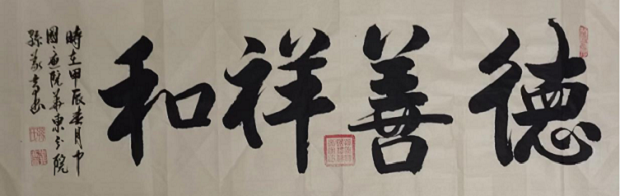 德善祥和
時在甲辰春月中
國院華東分院
孫